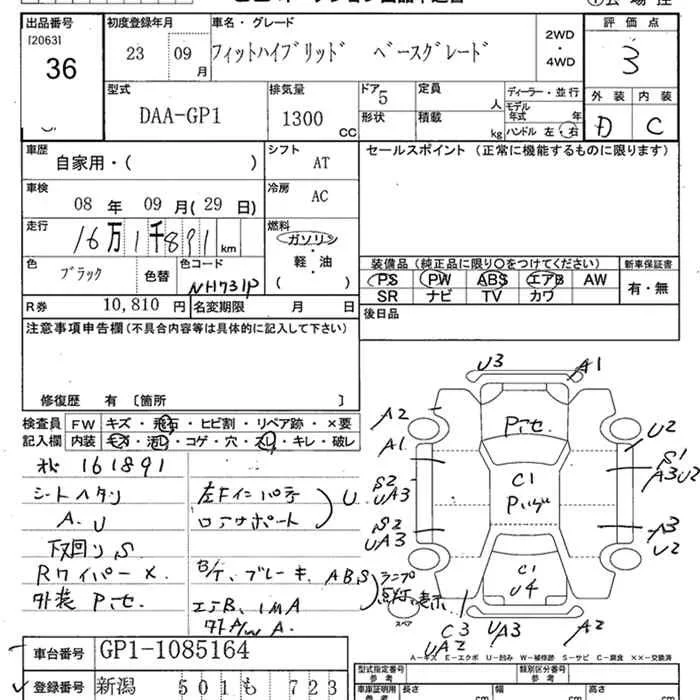 出品番号
[2063]
36
初度登録年月
23 09 月
車名・グレード
フィットハイブリッド ベースグレード
2WD
・
4WD
評価点
3
外装 内装
D C
型式
DAA-GP1
排気量
1300 CC
ドア 5
形状
定員 人
積載 kg
ディーラー・並行
モデル年式 年
ハンドル 左・右
車歴
自家用・( )
シフト
AT
車検
08 年 09 月(29 日)
冷房
AC
走行
16万1千891 km
燃料
ガソリン
軽・油
( )
色
ブラック
色替
色コード
NH731P
R券 10,810 円
名変期限 月 日
セールスポイント (正常に機能するものに限ります)
装備品 (純正品に限り○をつけてください)
新車保証書
PS PW ABS エアB AW
SR ナビ TV カワ
有・無
後日品
注意事項申告欄(不具合内容等は具体的に記入して下さい)
修復歴 有 [箇所 ]
検査員
記入欄
FW キズ・飛石・ヒビ割・リペア跡・×要
内装 キズ・汚れ・コゲ・穴・スレ・キレ・破レ
161891
シートヘタリ
A.U
下回りS
Rワイパー×
外装Pセ.
左Fインパネ
ロアサポート
U
B/T、ブレーキ、ABS
ランプ
点灯、表示
エアB、IMA
外A/W A.
U3
A1
A2
Pセ.
A1
U2
S1
A3U2
S2
UA3
C1
S2
UA3
A3
U2
C1
U4
スペア
C3
UA2
UA3
A2
A-キズ E-エクボ U-凹み W-補修跡 S-サビ C-腐食 ××-交換済
車台番号 GP1-1085164
登録番号 新潟 501 も 723
型式指定番号
参考
類別区分番号
参考
車庫証明用
参考
長さ cm
幅 cm
高さ cm